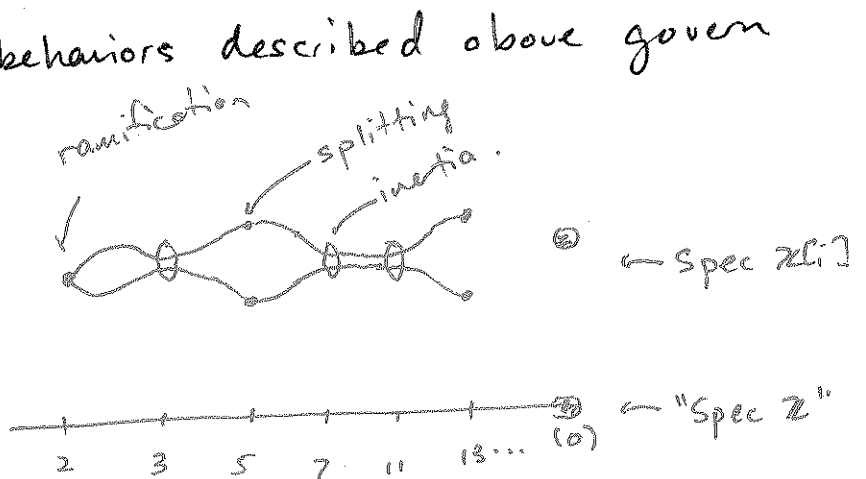 behaviors described above govern
ramification
splitting
inertia.
← Spec ℤ[i]
← "Spec ℤ"
2 3 5 7 11 13... (0)